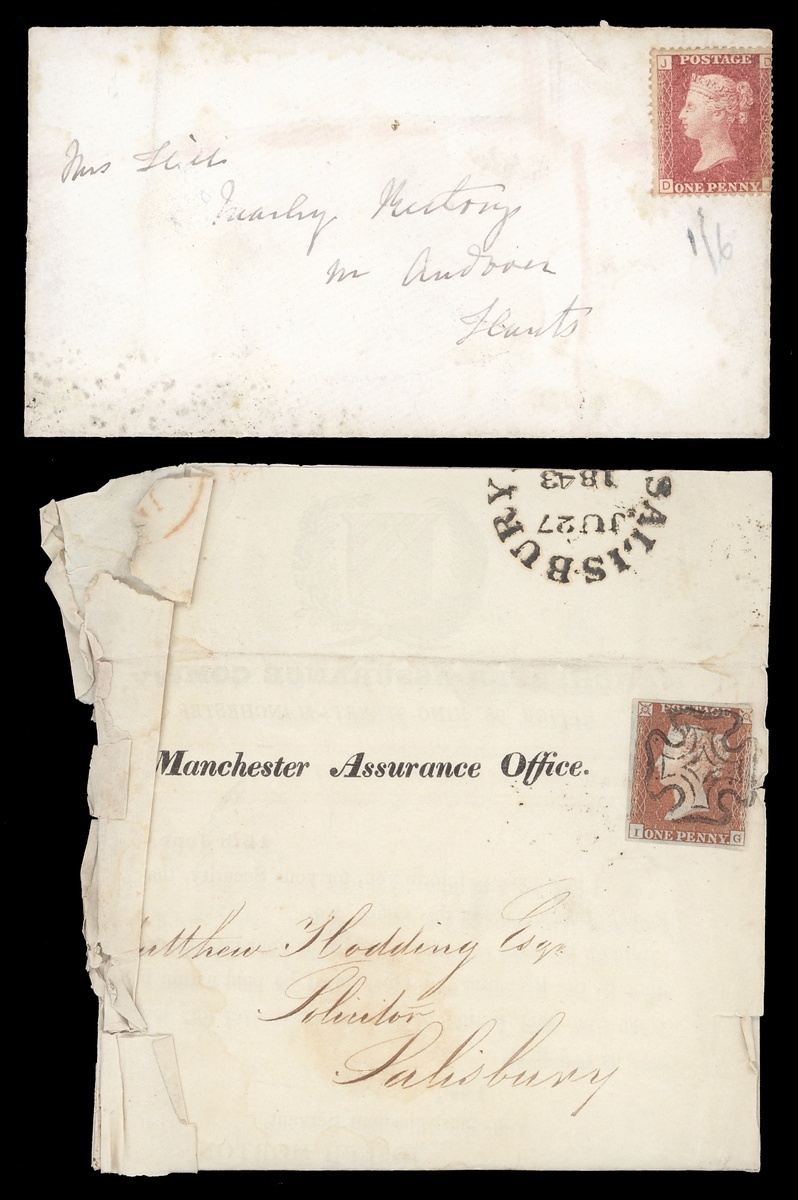 J POSTAGE D
D ONE PENNY J
Mrs
nr Andover
Hants
1/6
SALISBURY
JU 27
1843
Manchester Assurance Office.
POSTAGE
I ONE PENNY G
Matthew Hodding Esqr
Solicitor
Salisbury